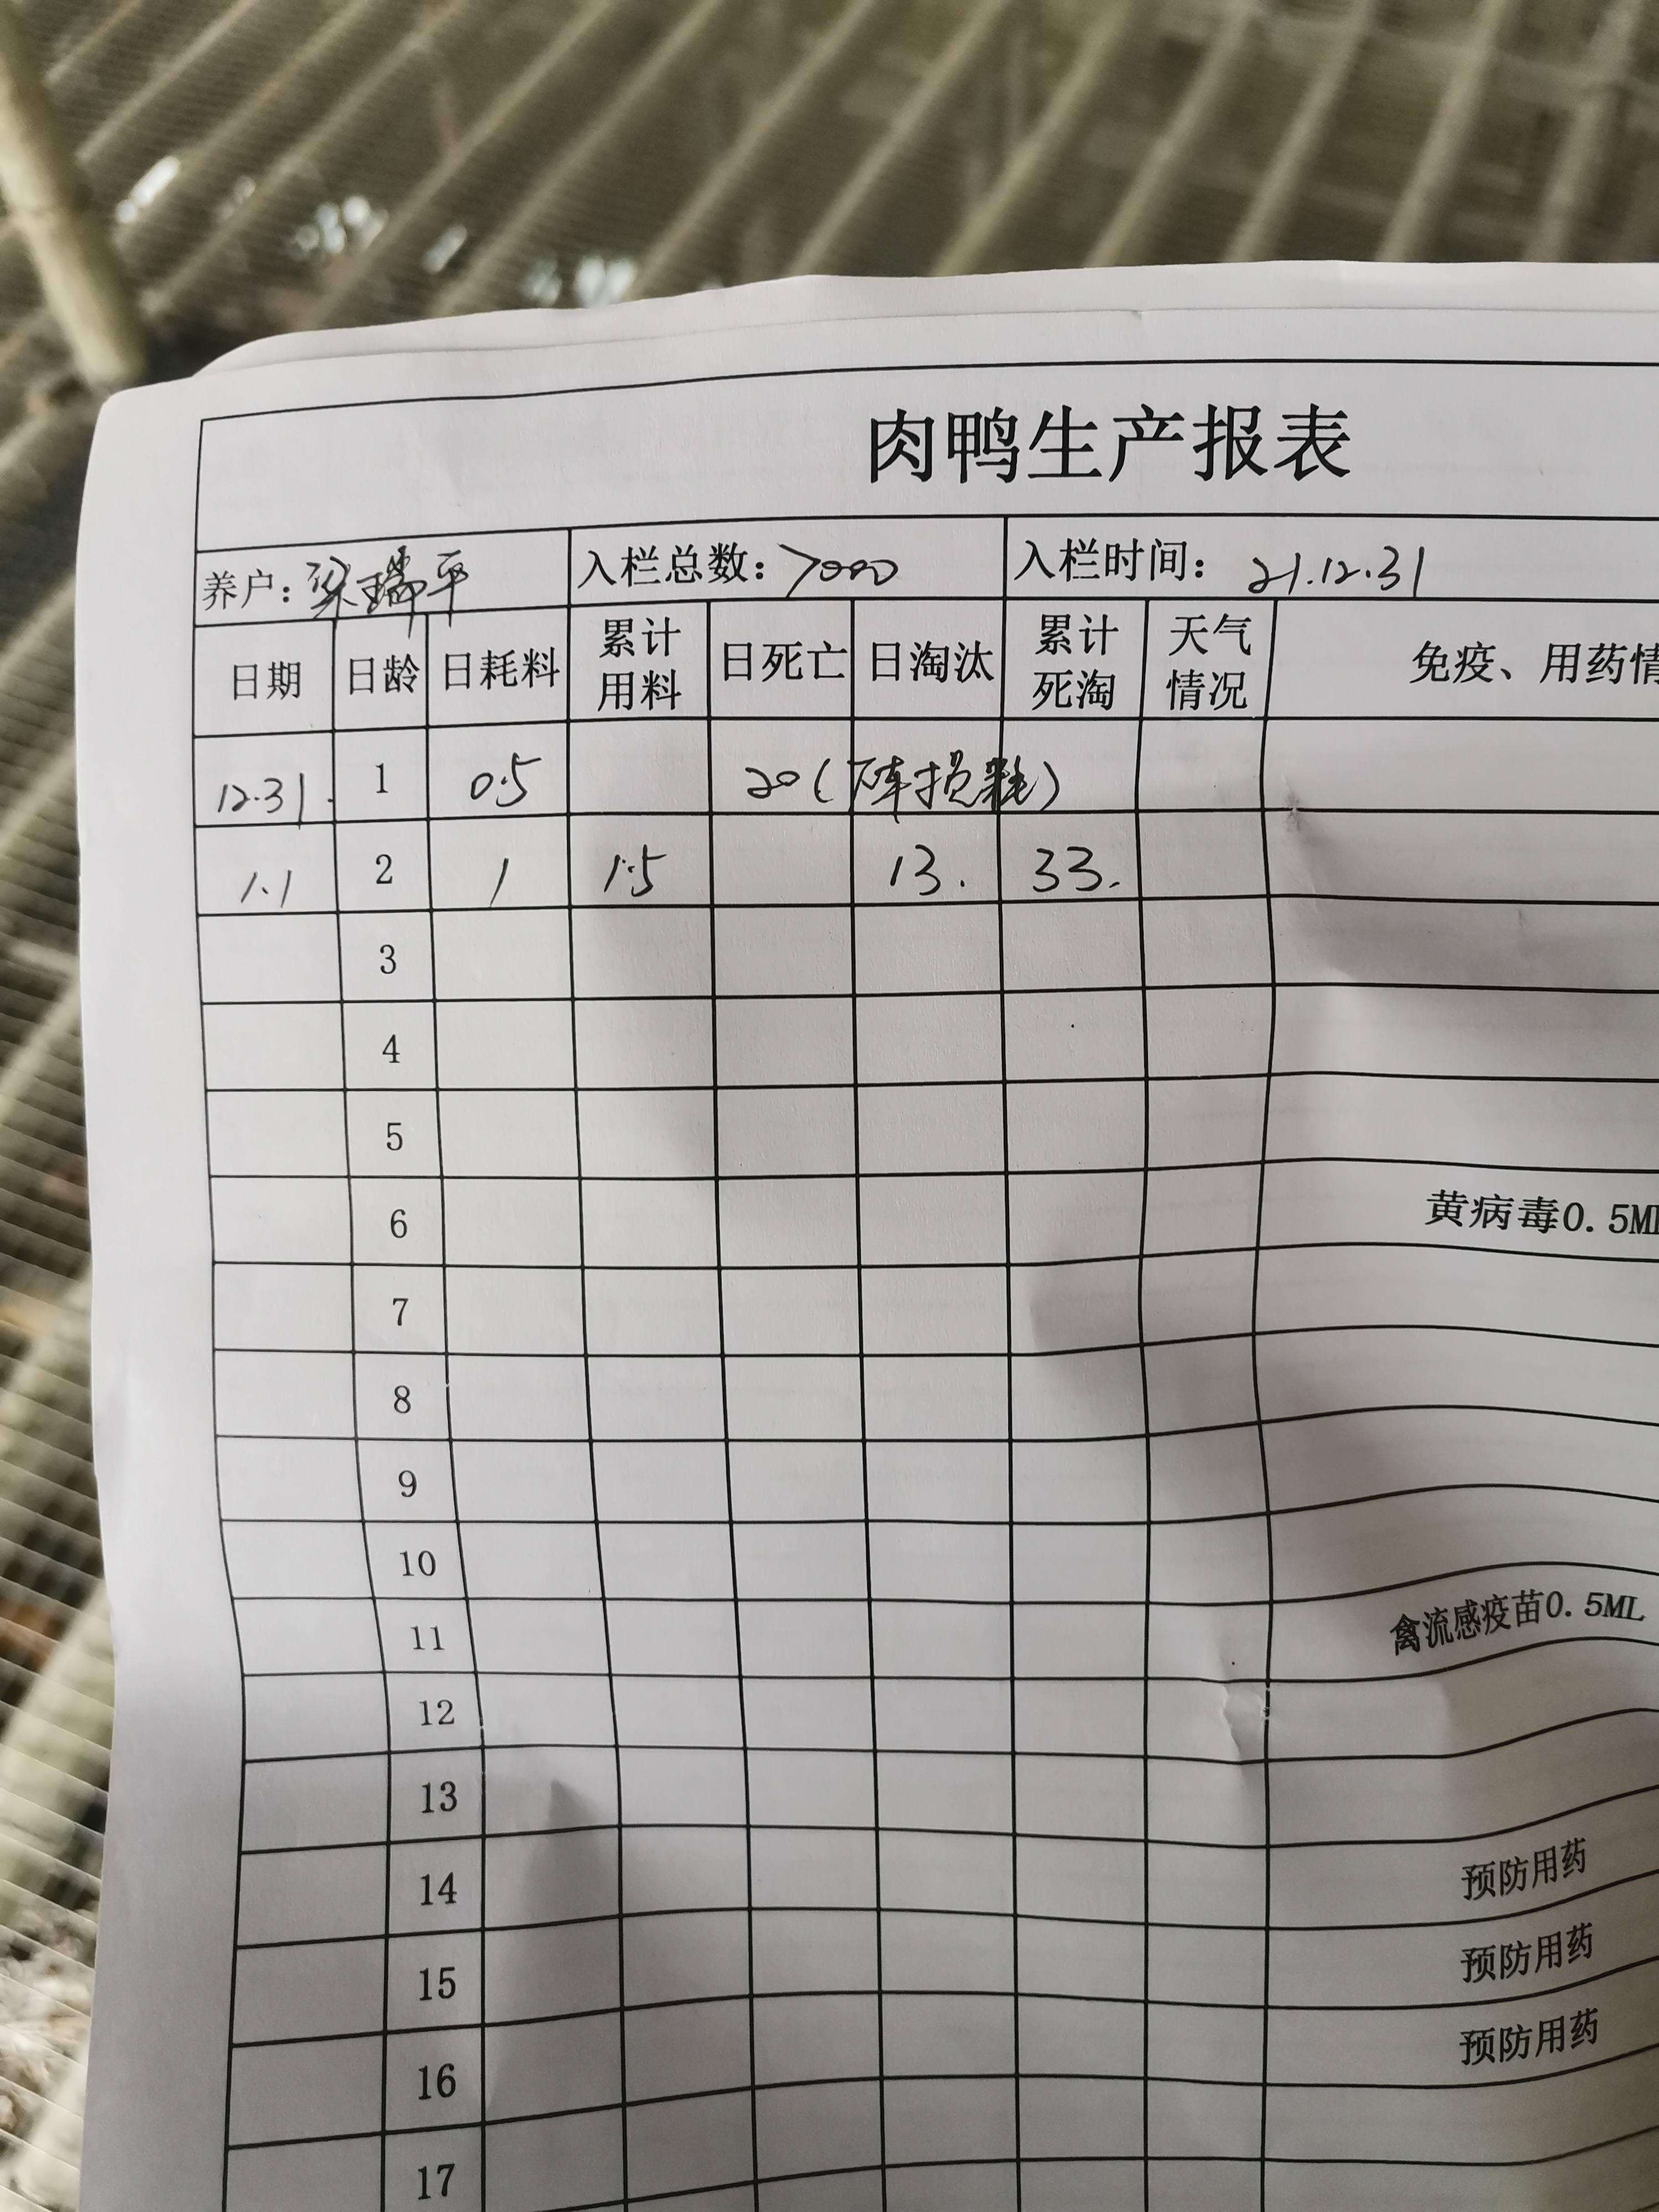 肉鸭生产报表
养户：梁瑞平 入栏总数：7000 入栏时间：21.12.31
日期 日龄 日耗料 累计用料 日死亡 日淘汰 累计死淘 天气情况 免疫、用药情
12.31 1 0.5 20( 损耗)
1.1 2 1 1.5 13. 33.
3
4
5
6 黄病毒0.5ML
7
8
9
10
11 禽流感疫苗0.5ML
12
13
14 预防用药
15 预防用药
16 预防用药
17